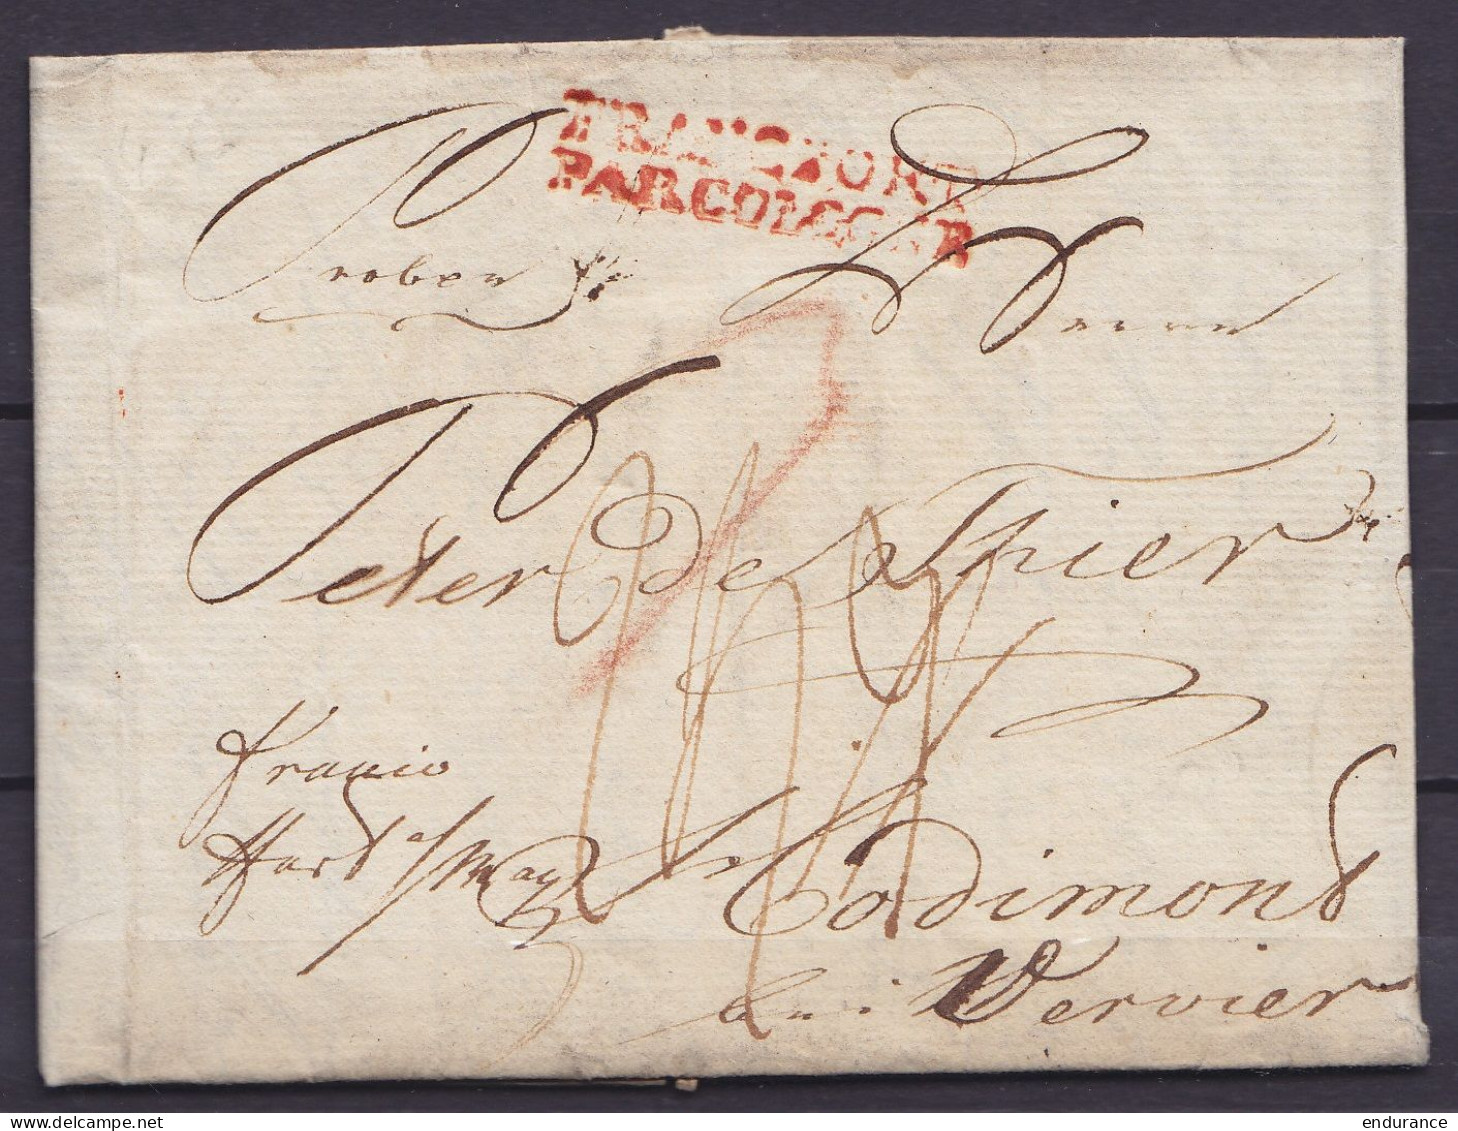 FRANCFORT
PAR COLOGNE
Proben
Herrn
Peter de Spier
franco
Hard a/May
Hodimont
bei Vervier
delcampe.net
endurance